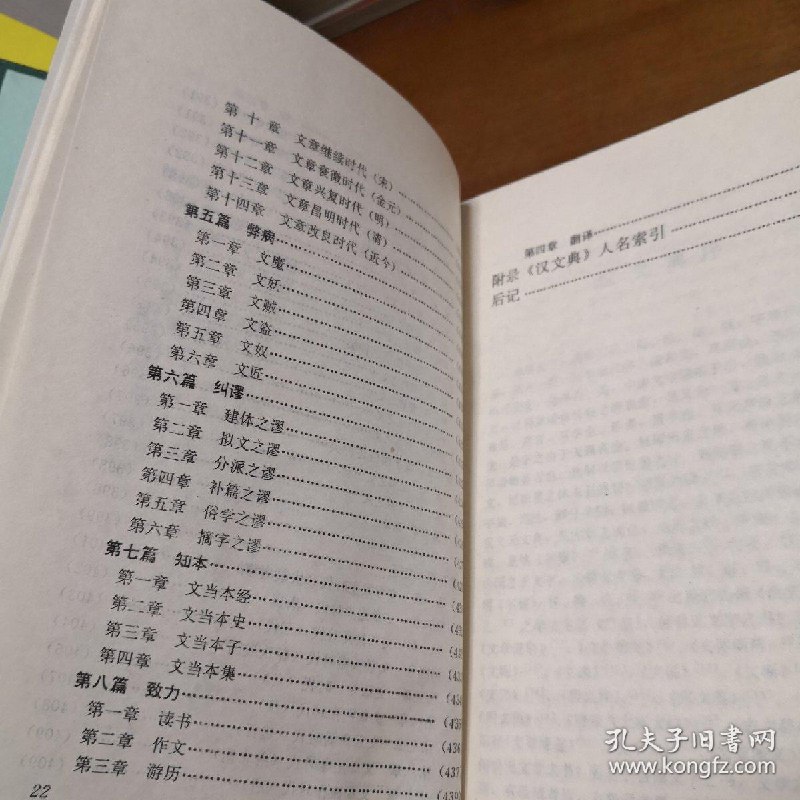 第十章 文章继续时代（宋）
第十一章 文章衰微时代（金元）
第十二章 文章兴复时代（明）
第十三章 文章昌明时代（清）
第十四章 文章改良时代（近今）
第五篇 弊病
第一章 文魔
第二章 文妖
第三章 文贼
第四章 文盗
第五章 文奴
第六章 文匠
第六篇 纠谬
第一章 建体之谬
第二章 拟文之谬
第三章 分派之谬
第四章 补篇之谬
第五章 俗字之谬
第六章 摭字之谬
第七篇 知本
第一章 文当本经
第二章 文当本史
第三章 文当本子
第四章 文当本集
第八篇 致力
第一章 读书
第二章 作文 (436
第三章 游历
22
第四章 翻译
附录《汉文典》人名索引
后记
孔夫子旧书网
www.kongfz.com